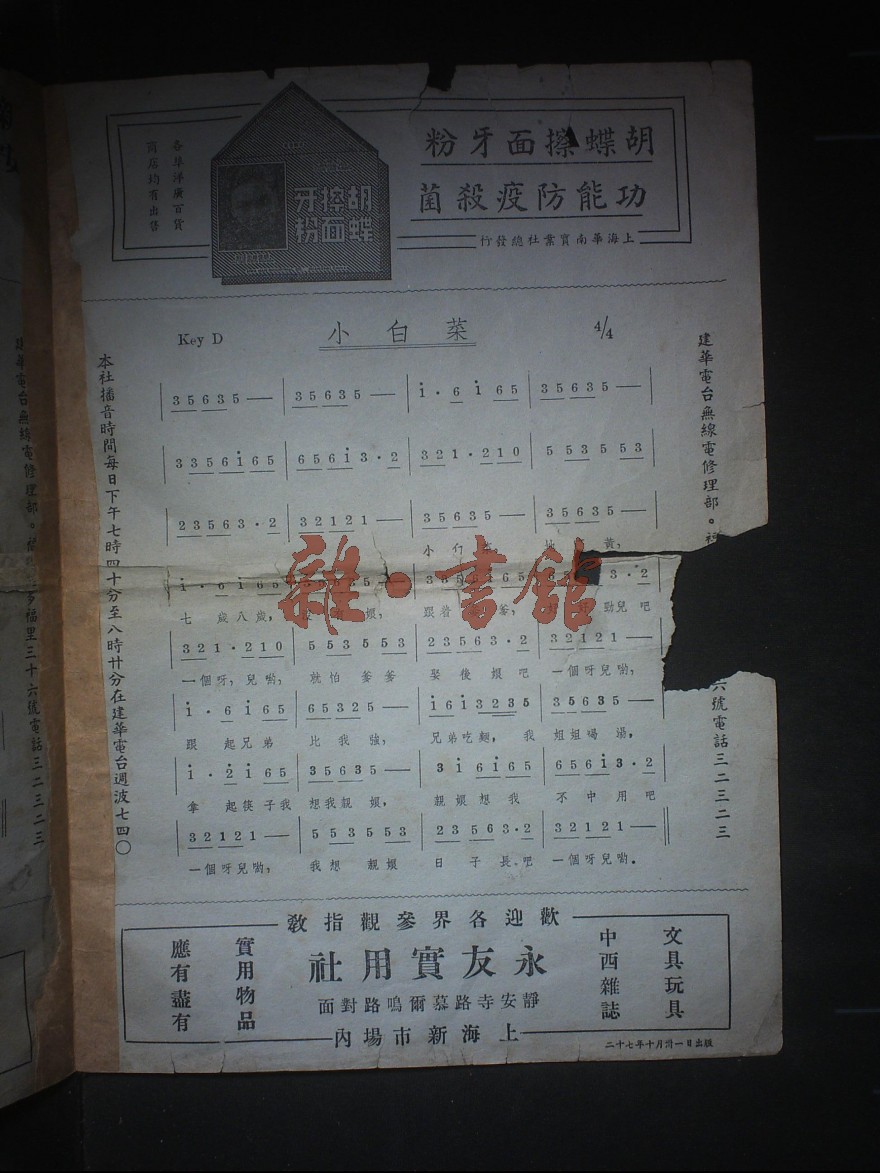 胡蝶擦面牙粉
功能防疫殺菌
上海華南實業社總發行
各埠洋廣百貨
商店均有出售
胡蝶
擦面
牙粉
Key D
小白菜
4/4
3 5 6 3 5 — 3 5 6 3 5 — i · 6 i 6 5 3 5 6 3 5 —
3 3 5 6 i 6 5 6 5 6 i 3 · 2 3 2 1 · 2 1 0 5 5 3 5 5 3
2 3 5 6 3 · 2 3 2 1 2 1 — 3 5 6 3 5 — 3 5 6 3 5 —
小 菜, 黃,
i · 6 i 6 5
七歲八歲, 娘, 跟着 爹, 勁兒吧
3 2 1 · 2 1 0 5 5 3 5 5 3 2 3 5 6 3 · 2 3 2 1 2 1 —
一個呀,兒喲, 就怕爹爹 娶後娘吧 一個呀兒喲,
i · 6 i 6 5 6 5 3 2 5 — i 6 i 3 2 3 5 3 5 6 3 5 —
跟起兄弟 比我強, 兄弟吃麵,我 姐姐喝湯,
i · 2 i 6 5 3 5 6 3 5 — 3 i 6 i 6 5 6 5 6 i 3 · 2
拿起筷子我 想我親娘, 親娘想我 不中用吧
3 2 1 2 1 — 5 5 3 5 5 3 2 3 5 6 3 · 2 3 2 1 2 1 —
一個呀兒喲, 我想親娘 日子長吧 一個呀兒喲.
建華電台無線電修理部。
六號電話三二三二三
本社播音時間每日下午七時四十分至八時廿分在建華電台週波七四〇
建華電台無線電修理部。
多福里三十六號電話三二三二三
雜·書館
歡迎各界參觀指教
永友實用社
靜安寺路慕爾鳴路對面
上海新市場內
文具玩具
中西雜誌
實用物品
應有盡有
二十七年十月卅一日出版